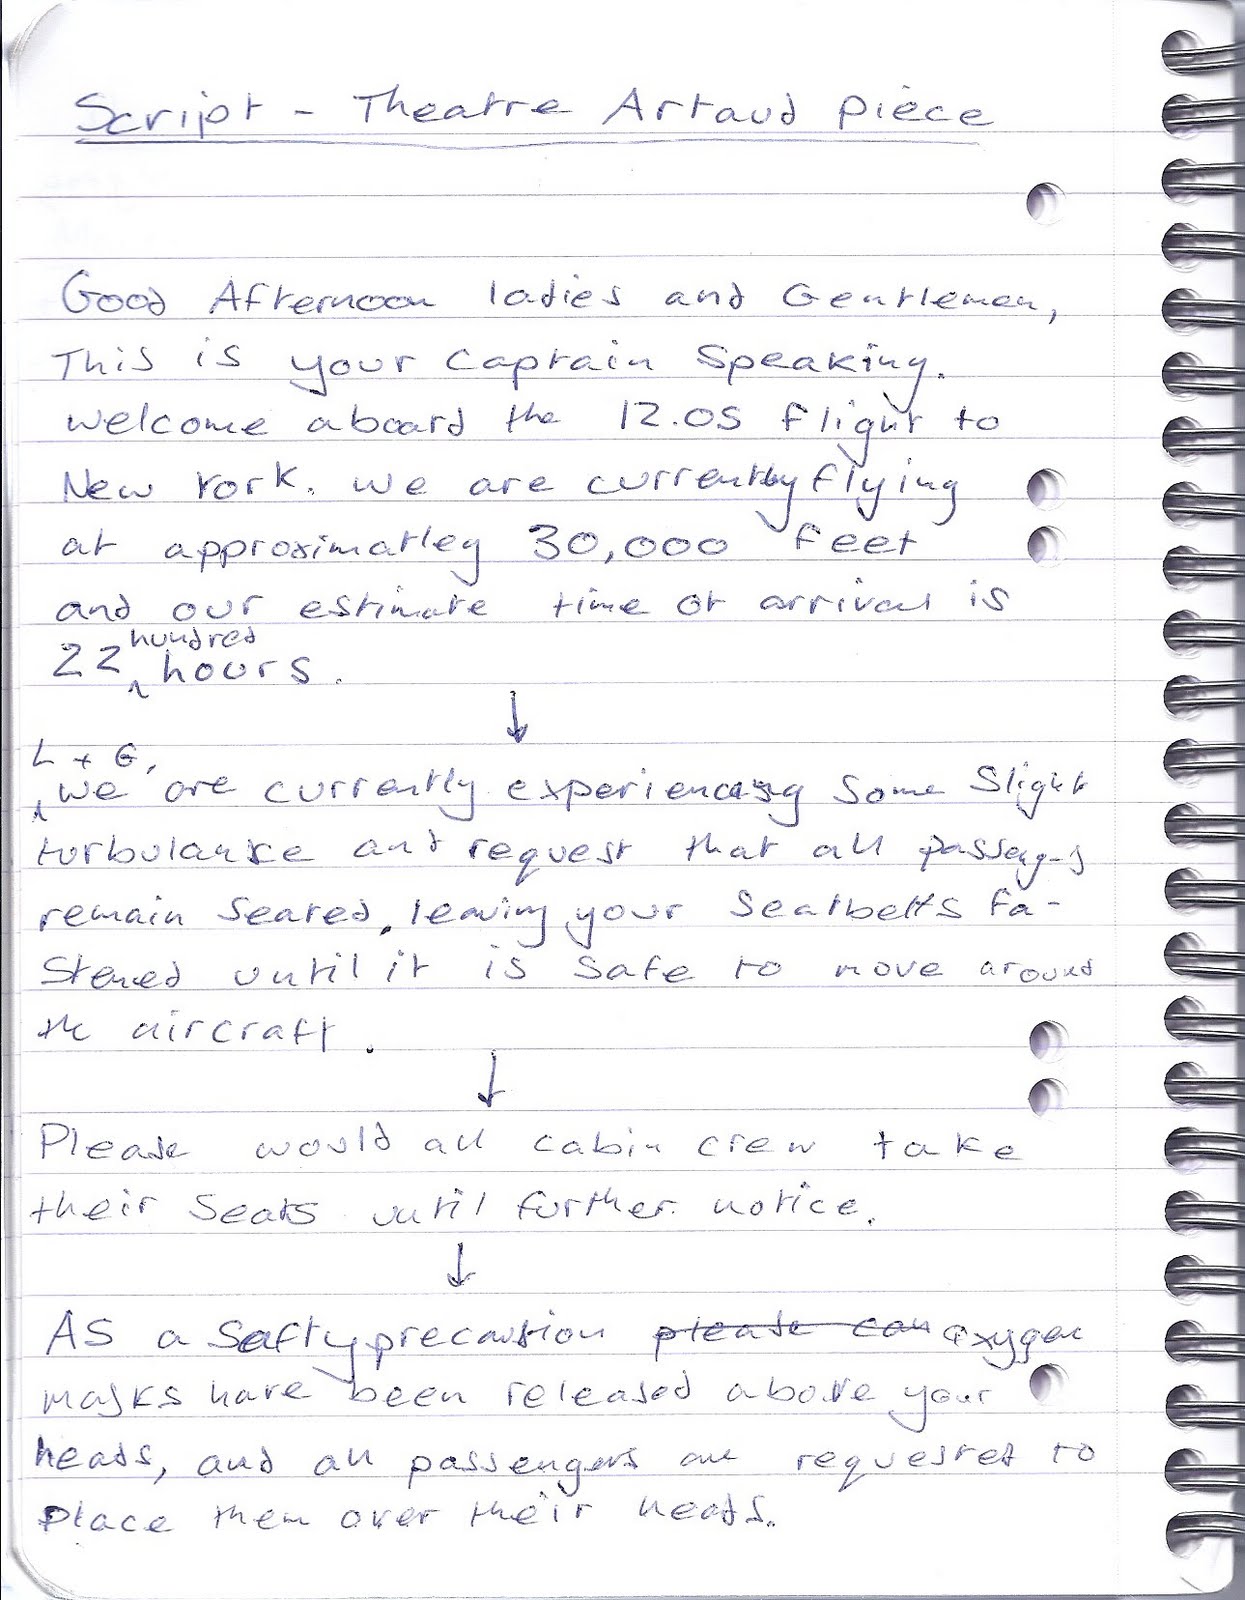 Script - Theatre Artaud Piece
Good Afternoon ladies and Gentlemen,
This is your Captain Speaking.
Welcome aboard the 12.05 flight to
New York. We are currently flying
at approximatley 30,000 feet
and our estimate time of arrival is
hundred
22 hours.
↓
L + G,
We are currently experiencing some slight
turbulance and request that all passengers
remain seated, leaving your seatbelts fa-
stened until it is safe to move around
the aircraft.
↓
Please would all cabin crew take
their seats until further notice.
↓
As a safty precaution please can oxygen
masks have been released above your
heads, and all passengers are requested to
place them over their heads.